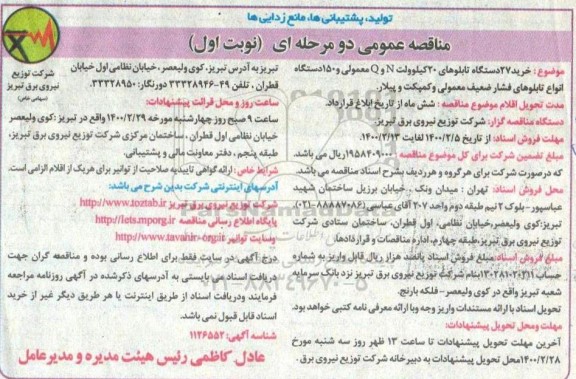 تولید، پشتیبانی ها، مانع زدایی ها
مناقصه عمومی دو مرحله ای (نوبت اول)
شرکت توزیع
نیروی برق تبریز
(سهامی خاص)
موضوع : خرید ۲۷دستگاه تابلوهای ۲۰کیلوولت N و Q معمولی و ۱۵۰دستگاه
انواع تابلوهای فشار ضعیف معمولی و کمپکت و پیلار
مدت تحویل اقلام موضوع مناقصه : شش ماه از تاریخ ابلاغ قرارداد.
دستگاه مناقصه گزار: شرکت توزیع نیروی برق تبریز.
مهلت فروش اسناد: از تاریخ ۱۴۰۰/۲/۵ لغایت ۱۴۰۰/۲/۱۳.
مبلغ تضمین شرکت برای کل موضوع مناقصه : ۱۹۵۸۴۰۹۰۰۰ریال می باشد.
که درصورت شرکت برای هر گروه و هرردیف بشرح اسناد مناقصه می باشد.
محل فروش اسناد: تهران : میدان ونک . خیابان برزیل ساختمان شهید
عباسپور-بلوک ۲ نیم طبقه دوم واحد ۲۰۷ آقای عباسی (۸۸۸۸۷۰۸۶-۰۲۱)
تبریز:کوی ولیعصر،خیابان نظامی، اول قطران، ساختمان ستادی شرکت
توزیع نیروی برق تبریز،طبقه چهارم، اداره مناقصات و قراردادها.
مبلغ فروش اسناد:مبلغ فروش اسناد پانصد هزار ریال قابل واریز به شماره
حساب بنام شرکت توزیع نیروی برق تبریز نزد بانک سرمایه
شعبه تبریز واقع در کوی ولیعصر- فلکه بارنج.
تحویل اسناد با ارائه مستندات واریز وجه وبا ارائه معرفی نامه کتبی خواهد بود.
مهلت ومحل تحویل پیشنهادات:
آخرین مهلت تحویل پیشنهادات تا ساعت ۱۳ ظهر روز سه شنبه مورخ
۱۴۰۰/۲/۲۸محل تحویل پیشنهادات به دبیرخانه شرکت توزیع نیروی برق .
تبریز به آدرس تبریز، کوی ولیعصر ، خیابان نظامی اول خیابان
قطران ، تلفن ۴۹-۳۳۳۲۸۹۴۶ دورنگار: ۳۳۳۲۸۹۵۰.
ساعت روز و محل قرائت پیشنهادات:
ساعت ۹ صبح روز چهارشنبه مورخه ۱۴۰۰/۲/۲۹ واقع در تبریز :کوی ولیعصر
خیابان نظامی اول قطران ، ساختمان مرکزی شرکت توزیع نیروی برق تبریز،
طبقه پنجم ، دفتر معاونت مالی و پشتیبانی.
شرایط خاص : ارائه گواهی تاییدیه صلاحیت از توانیر برای هریک از اقلام الزامی است.
آدرسهای اینترنتی شرکت بدین شرح می باشد:
شرکت توزیع نیروی برق تبریز http://www.toztab.ir
پایگاه اطلاع رسانی مناقصه http://iets.mporg.ir
وسایت توانیر http://www.tavanir-org.ir
درج آگهی در سایت فقط برای اطلاع رسانی بوده و مناقصه گران جهت
دریافت اسناد می بایستی به آدرسهای ذکرشده در آگهی روزنامه مراجعه
فرمایند ودریافت اسناد از طریق اینترنت یا هر طریق دیگر غیر از خرید
اسناد قابل قبول نمی باشد.
شناسه آگهی: ۱۱۲۶۵۵۲
عادل کاظمی رئیس هیئت مدیره و مدیرعامل